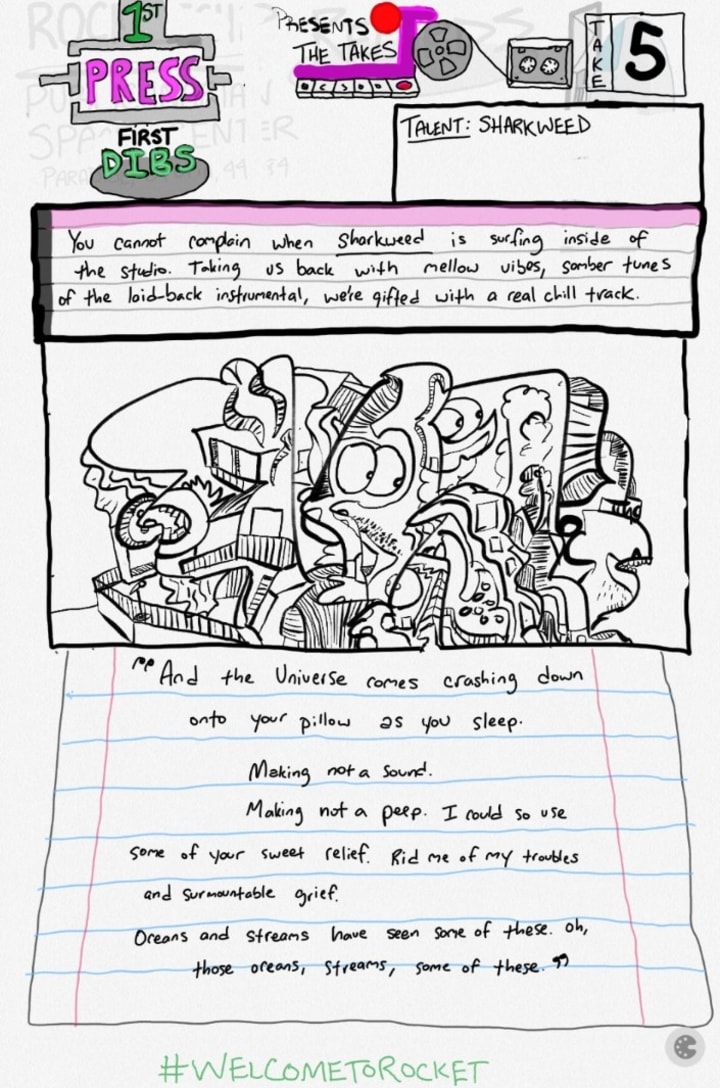 1ST
PRESS
FIRST
DIBS
PRESENTS
THE TAKES
TAKE
5
TALENT: SHARKWEED
You cannot complain when Sharkweed is surfing inside of
the studio. Taking us back with mellow vibes, somber tunes
of the laid-back instrumental, we're gifted with a real chill track.
"And the Universe comes crashing down
onto your pillow as you sleep.
Making not a sound.
Making not a peep. I could so use
some of your sweet relief. Rid me of my troubles
and surmountable grief.
Oceans and streams have seen some of these. Oh,
those oceans, streams, some of these."
#WELCOMETOROCKET